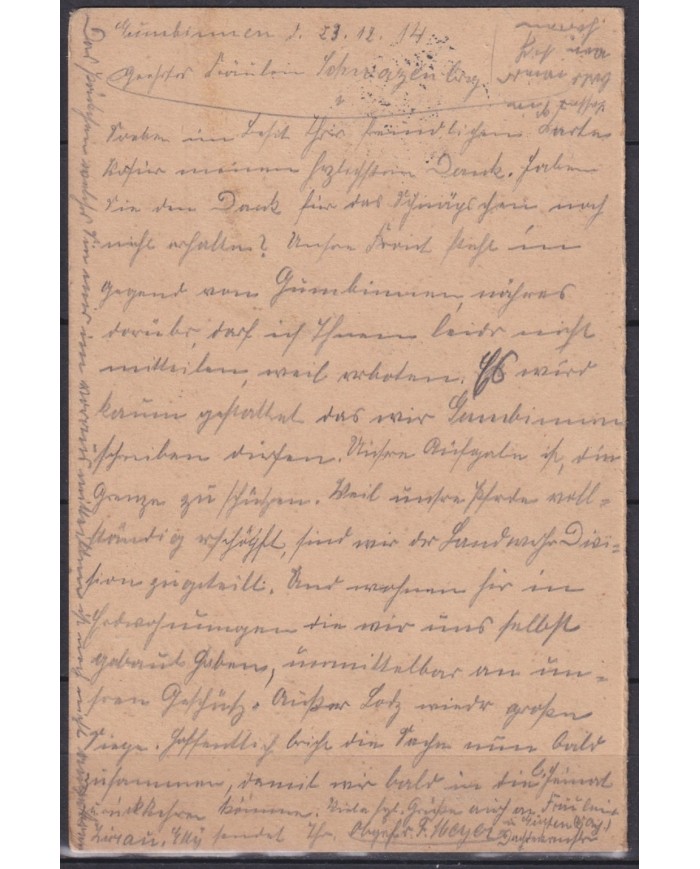 Gumbinnen d. 23.12.14
Geehrtes Fräulein Schwazenberg
Soeben im Besitz Ihrer freundlichen Karte
wofür meinen herzlichsten Dank. Haben
Sie den Dank für das Schnäpschen noch
nicht erhalten? Unsre Front steht in
Gegend von Gumbinnen, nähres
darübr, darf ich Ihnen leidr nicht
mitteilen, weil verboten. Es wird
kaum gestattet das wir Gumbinnen
schreiben dürfen. Unsre Aufgabe ist, die
Grenze zu schützen. Weil unsre Pferde voll-
ständig erschöpft, sind wir der Landwehr Divi-
sion zugeteilt. Und wohnen hir in
Erdwohnungen die wir uns selbst
gebaut haben, unmittelbar an un-
sren Geschütz. Außer Lodz wiedr große
Siege. Hoffentlich bricht die Sache nun bald
zusammen, damit wir bald in die Heimat
zurückkehren können. Viele hzl. Grüße auch an Fräulein
sendet Ihr Obgefr. F. Meyer
Das Päckchen welches Sie mir in